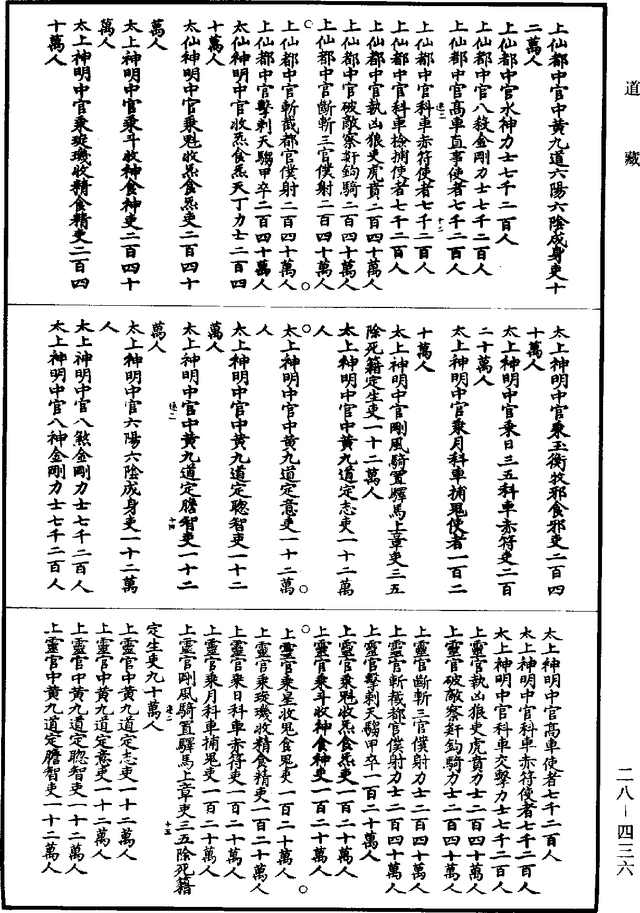 道藏
上仙都中官中黃九道六陽六陰成身吏十
二萬人
上仙都中官水神力士七千二百人
上仙都中官八煞金剛力士七千二百人
上仙都中官高車直事使者七千二百人
上仙都中官科車赤符使者七千二百人
上仙都中官科車捡捕使者七千二百人
上仙都中官執凶狼吏虎賁二百四十萬人
上仙都中官破敵察奸鉤騎二百四十萬人
上仙都中官斷斬三官僕射二百四十萬人
上仙都中官斬截都官僕射二百四十萬人
上仙都中官擊刺天騶甲卒二百四十萬人
太仙神明中官收炁食炁天丁力士二百四
十萬人
太仙神明中官乘魁收炁食炁吏二百四十
萬人
太上神明中官乘斗收神食神吏二百四十
萬人
太上神明中官乘璇璣收精食精吏二百四
十萬人
太上神明中官乘玉衡收邪食邪吏二百四
十萬人
太上神明中官乘日三五科車赤符吏二百
二十萬人
太上神明中官乘月科車捕鬼使者一百二
十萬人
太上神明中官剛風騎置驛馬上章吏三五
除死籍定生吏一十二萬人
太上神明中官中黃九道定志吏一十二萬
人
太上神明中官中黃九道定意吏一十二萬
人
太上神明中官中黃九道定聰智吏一十二
萬人
太上神明中官中黃九道定膽智吏一十二
萬人
太上神明中官六陽六陰成身吏一十二萬
人
太上神明中官八煞金剛力士七千二百人
太上神明中官八神金剛力士七千二百人
太上神明中官高車使者七千二百人
太上神明中官科車赤符使者七千二百人
太上神明中官科車交擊力士七千二百人
上靈官執凶狼吏虎賁力士二百四十萬人
上靈官破敵察奸鉤騎力士二百四十萬人
上靈官斷斬三官僕射力士二百四十萬人
上靈官斬截都官僕射力士二百四十萬人
上靈官擊刺天騶甲卒一百二十萬人
上靈官乘魁收炁食炁吏一百二十萬人
上靈官乘斗收神食神吏一百二十萬人
上靈官乘星收鬼食鬼吏一百二十萬人
上靈官乘璇璣收精食精吏一百二十萬人
上靈官乘日科車赤符吏一百二十萬人
上靈官乘月科車捕鬼吏一百二十萬人
上靈官剛風騎置驛馬上章吏三五除死籍
定生吏九十萬人
上靈官中黃九道定志吏一十二萬人
上靈官中黃九道定意吏一十二萬人
上靈官中黃九道定聰智吏一十二萬人
上靈官中黃九道定膽智吏一十二萬人
二八-四三六